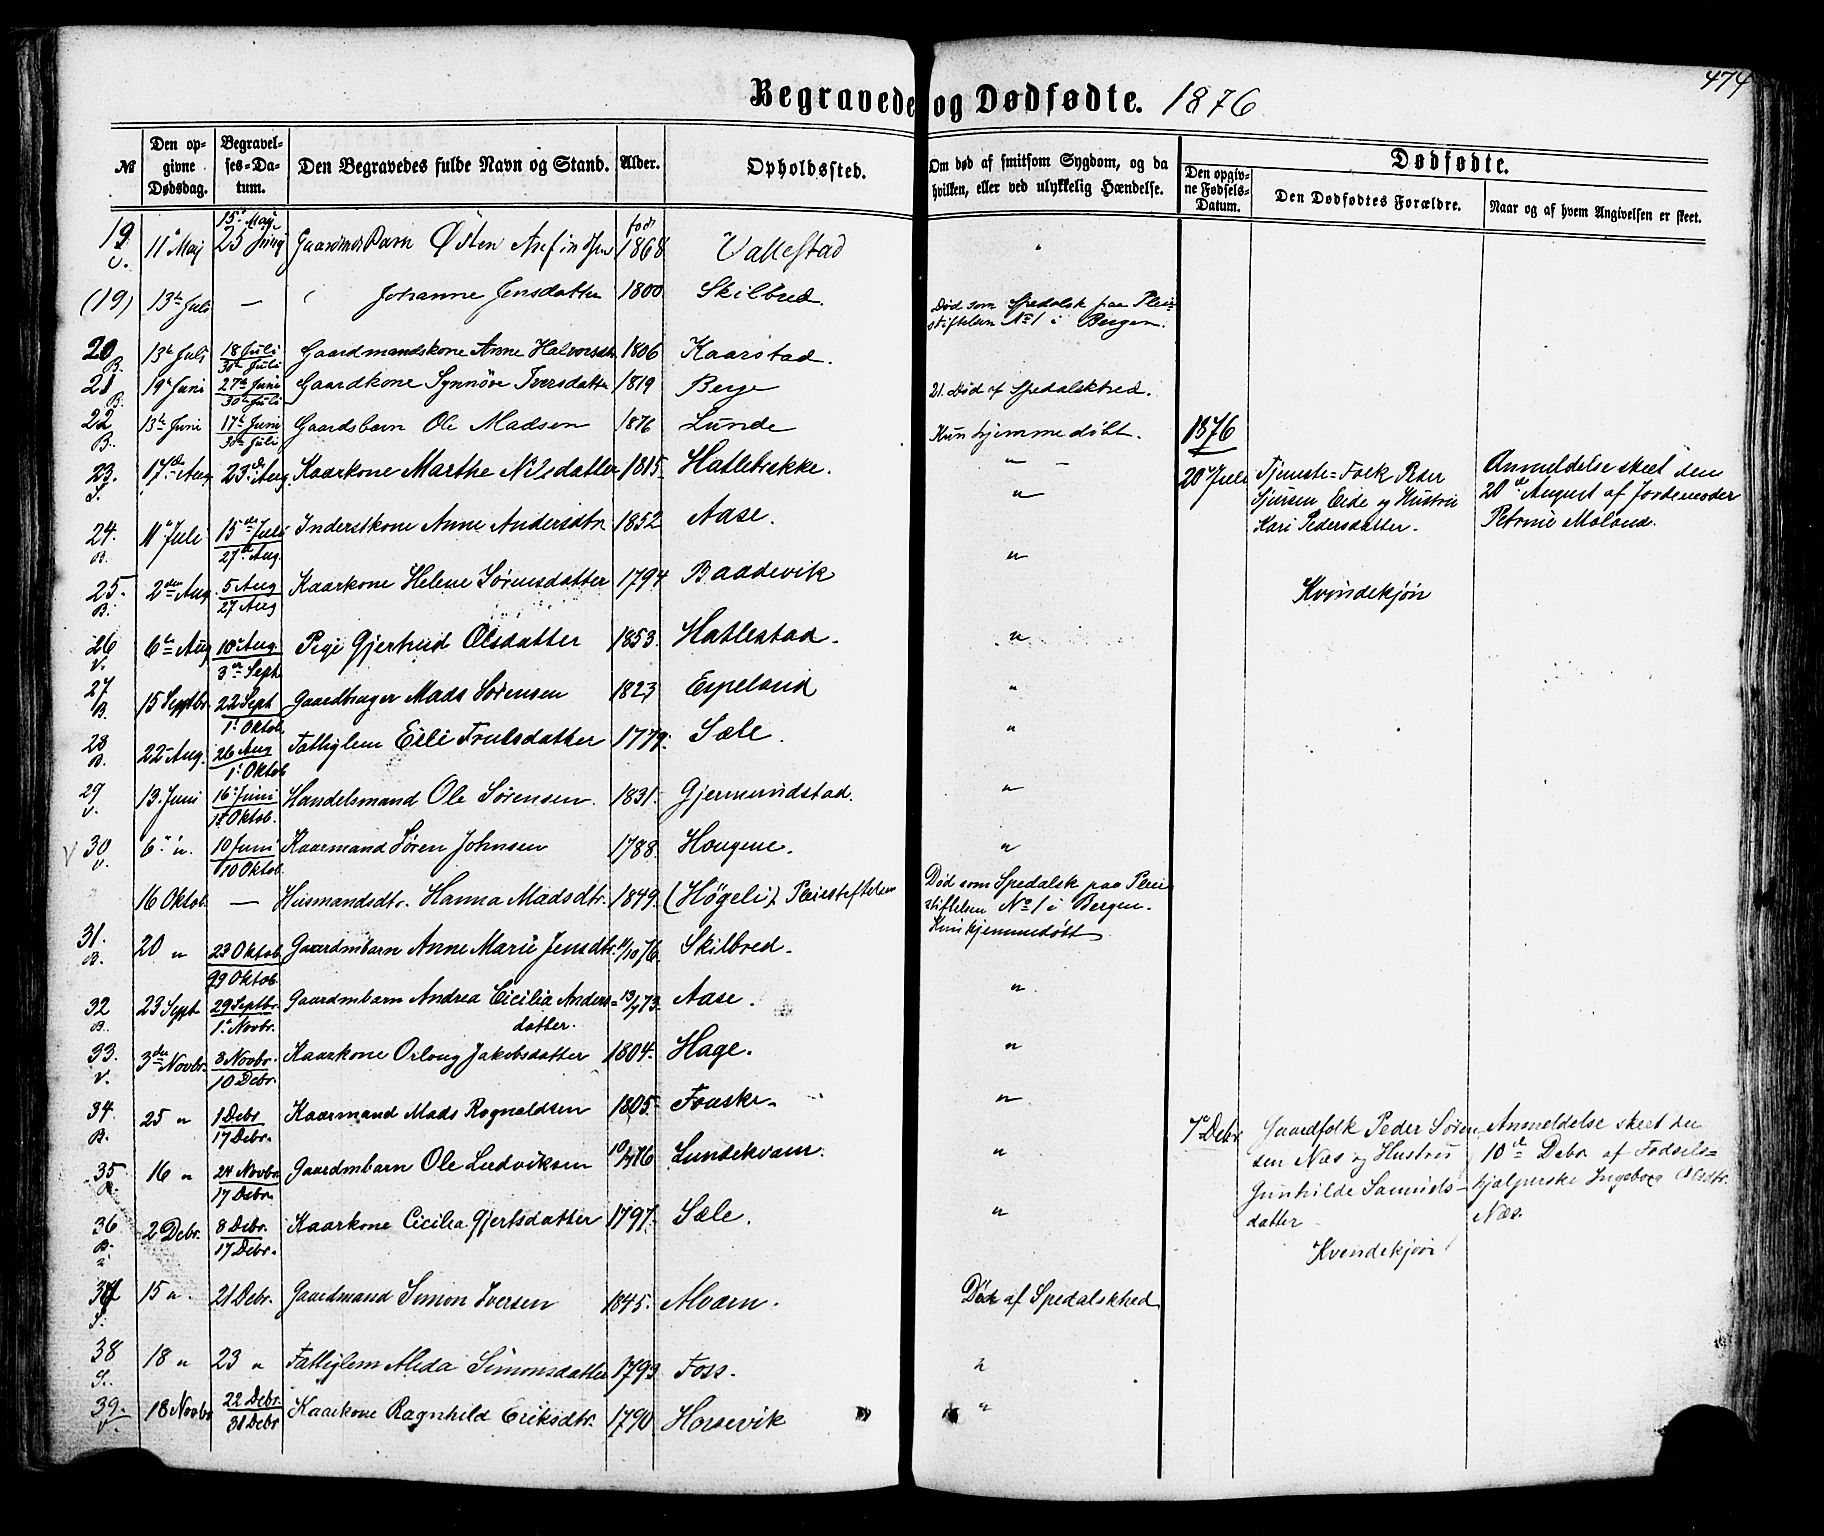 474
Begravede og Dødfødte. 1876
№ | Den opgivne Dødsdag. | Begravelses-Datum. | Den Begravedes fulde Navn og Stand. | Alder. | Opholdssted. | Om død af smitsom Sygdom, og da hvilken, eller ved ulykkelig Hændelse. | Dødfødte.
Den opgivne Fødsels-Datum. | Den Dødfødtes Forældre. | Naar og af hvem Angivelsen er skeet.
19 V. 11 Maj 15 Maj 25 Juny Gaardmds Barn Østen født 1868 Vallestad "
(19) 13de Juli — " Johanne Jensdatter 1800 Skilbred. Død som Spedalsk paa Pleiestiftelsen No 1 i Bergen.
20 B. 13de Juli 18 Juli 30te Juli Gaardmandskone Anne Halvorsdtr 1806 Kaarstad.
21 B. 19de Juni 27de Juni 30te Juli Gaardkone Synnøve Iversdatter 1819 Berge 21. Død af Spedalskhed.
22 B. 13de Juni 17de Juni 30te Juli Gaardsbarn Ole Madsen 1876 Lunde Kun hjemmedøbt. 1876
23. S. 17de Aug 23de Aug. Kaarkone Marthe Nilsdatter 1815. Hatlebrekke. " —
20 Juli Tjeneste=Folk Peder Sjursen Eide og Hustru Kari Pedersdatter. Anmeldelse skeet den 20de August af Jordemoder Petrine Moland.
24. B. 11 Juli 15de Juli 27de Aug Inderstkone Anne Andersdtr. 1852 Aase. "
25. B. 2den Aug 5 Aug 27 Aug Kaarkone Helene Sørensdatter 1794 Baadevik "
Kvindekjøn
26 V. 6te Aug 10 Aug. 3die Sept Pige Gjertrud Olsdatter 1853. Hatlestad. "
27 B. 15 Septbr. 22 Sept 1. Oktob Gaardbruger Mads Sørensen 1823 Espeland "
28 B. 22 Aug. 26 Aug 1. Oktob Fattiglem Eili 1779. Sæle. "
29 V. 13. Juni 16. Juni 1ste Oktob. Handelsmand Ole Sørensen. 1831. Gjermundstad. "
V 30 V. 6. " 10 Juni 10 Oktob Kaarmand Søren Johnsen 1788. Hougene. "
16 Oktob. — Husmandsdtr. Hanna Madsdtr. 1849. (Høgeli) Pleiestiftelsen Død som Spedalsk paa Pleiestiftelsen No 1 i Bergen.
31. B. 20 " 23 Oktob 29 Oktob Gaardmbarn Anne Marie Jensdtr. 11/10 76. Skilbred. Kun hjemmedøbt
32 B. 23 Sept 29 Septbr. 1. Novbr. Gaardmbarn Andrea Cicilia Anders=datter. 13/4 73. Aase. "
33. V. 3die Novbr. 3 Novbr. 10 Debr. Kaarkone Oloug Jakobsdatter 1804. Hage. "
34. B. 25 " 1 Debr 17 Debr. Kaarmand Mads Rognaldsen 1805. Fauske. "
7de Debr Gaardfolk Peder Sørensen Næs og Hustru Gunhilde Samuelsdatter Anmeldelse skeet den 10de Debr af Fødsels=hjælperske Ingeborg Olsdtr. Næs.
Kvindekjøn
35 16 " 24 Novbr. 17 Debr. Gaardmbarn Ole Ludviksen 76 Lundekvam. "
36 B. 2 Debr. 8 Debr. 17 Debr. Kaarkone Cicilia Gjertsdatter 1797. Sæle. "
37 S. 15 " 21 Debr. Gaardmand Simon Iversen 1845. Alværn. Død af Spedalskhed
38 S. 18 " 23 " Fattiglem Alida Simonsdatter 1793 Foss. "
39. V. 18 Novbr 22 Debr. 31 Debr Kaarkone Ragnhild Eriksdtr. 1790 Horsevik "